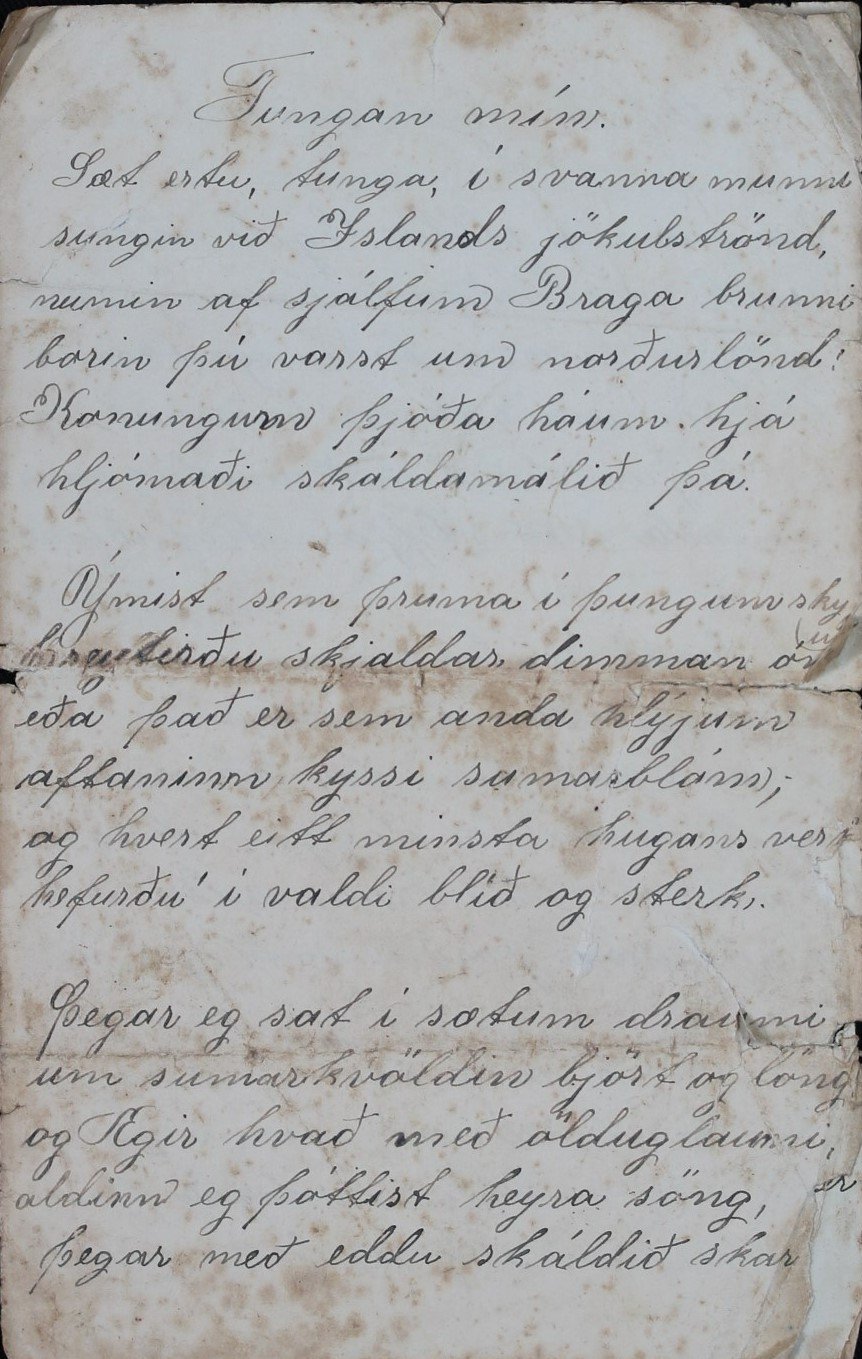 Tungan mín.
Sæt ertu, tunga, í svanna munni
sungin við Íslands jökulströnd,
numin af sjálfum Braga brunni
borin þú varst um norðurlönd!
Konungum þjóða háum hjá
hljómaði skáldamálið þá.
Ýmist sem þruma í þungum skýjum
breytirðu skjaldar dimman óm
eða það er sem anda hlýjum
aftaninn kyssi sumarblóm;
og hvert eitt minsta hugans verk
hefurðu í valdi blíð og sterk.
Þegar eg sat í sætum draumi
um sumarkvöldin björt og löng
og Ægir hvað með ölduglaumi,
aldinn eg þóttist heyra söng, er
þegar með eddu skáldið skar